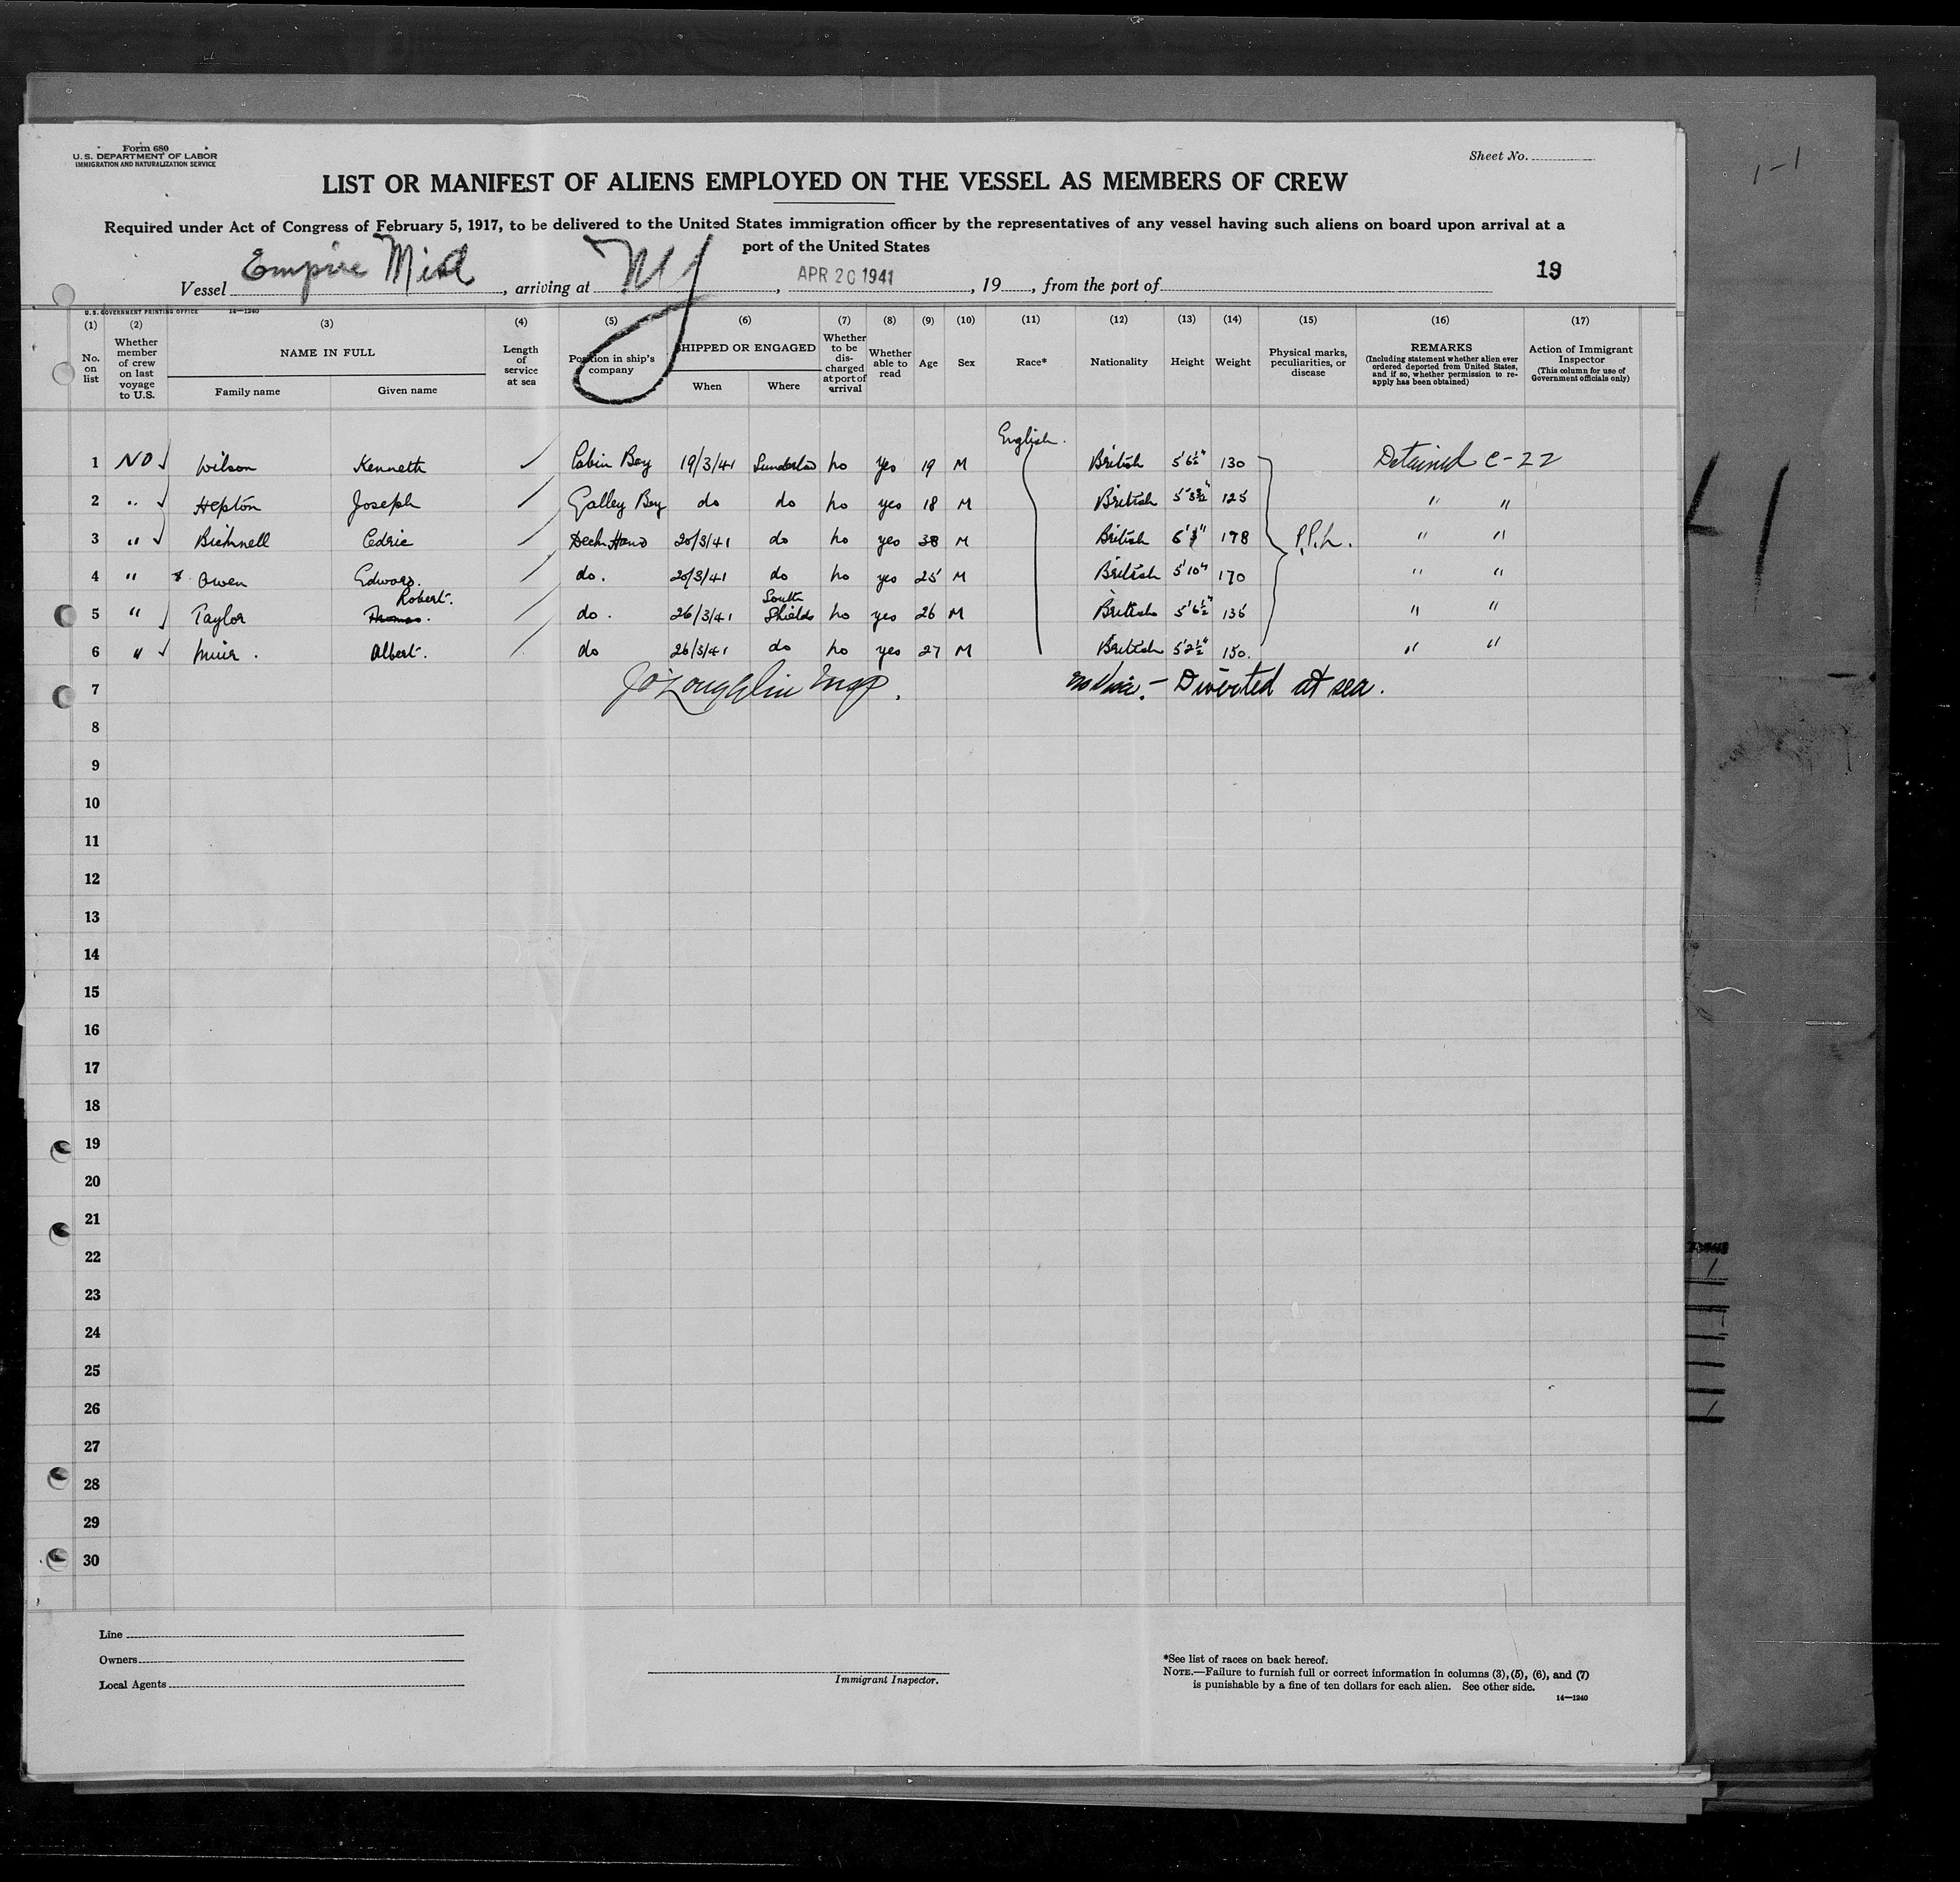 Form 680
U.S. DEPARTMENT OF LABOR
IMMIGRATION AND NATURALIZATION SERVICE
Sheet No.
LIST OR MANIFEST OF ALIENS EMPLOYED ON THE VESSEL AS MEMBERS OF CREW
Required under Act of Congress of February 5, 1917, to be delivered to the United States immigration officer by the representatives of any vessel having such aliens on board upon arrival at a
port of the United States
19
Vessel Empire , arriving at NY , APR 20 1941 , 19 , from the port of
U. S. GOVERNMENT PRINTING OFFICE 14—1240
(1) (2) (3) (4) (5) (6) (7) (8) (9) (10) (11) (12) (13) (14) (15) (16) (17)
No. on list
Whether member of crew on last voyage to U.S.
NAME IN FULL
Family name Given name
Length of service at sea
Position in ship's company
SHIPPED OR ENGAGED
When Where
Whether to be discharged at port of arrival
Whether able to read
Age
Sex
Race*
Nationality
Height
Weight
Physical marks, peculiarities, or disease
REMARKS
(Including statement whether alien ever ordered deported from United States, and if so, whether permission to reapply has been obtained)
Action of Immigrant Inspector
(This column for use of Government officials only)
English.
1 NO Wilson Kenneth Cabin Boy 19/3/41 Sunderland no yes 19 M British 5'6½" 130 Detained C-22
2 " Hepton Joseph Galley Boy do do no yes 18 M British 125 " "
3 " Bicknell Cedric Deck Hand 20/3/41 do no yes 38 M British 178 P.P.L. " "
4 " Owen Edward. do. 20/3/41 do no yes 25 M British 5'10" 170 " "
Robert. South
5 " Taylor Thomas. do. 26/3/41 Shields no yes 26 M British 5'6½" 135 " "
6 " Muir. Albert. do 26/3/41 do no yes 27 M British 5'2½" 150. " "
7 J O'Loughlin Insp. Diverted at sea.
8
9
10
11
12
13
14
15
16
17
18
19
20
21
22
23
24
25
26
27
28
29
30
Line
Owners
Local Agents
Immigrant Inspector.
*See list of races on back hereof.
NOTE.—Failure to furnish full or correct information in columns (3), (5), (6), and (7)
is punishable by a fine of ten dollars for each alien. See other side.
14—1240